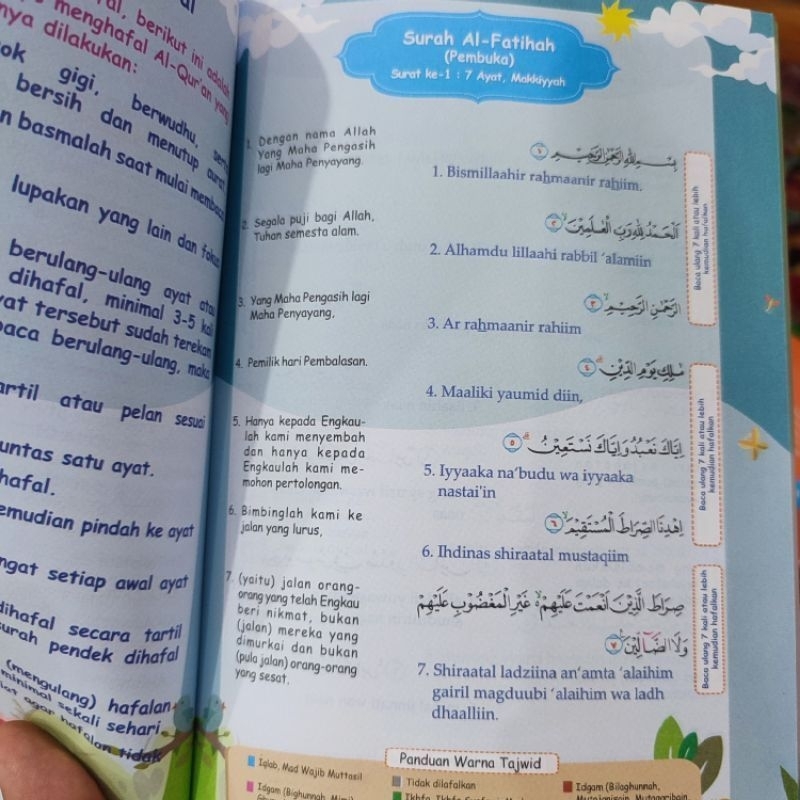 al, berikut ini adalah
menghafal Al-Qur'an yang
nya dilakukan:
ok gigi, berwudhu, serta
bersih dan menutup aurat
n basmalah saat mulai membaca
lupakan yang lain dan fokus
berulang-ulang ayat atau
dihafal, minimal 3-5 kali
yat tersebut sudah terekam
baca berulang-ulang, maka
artil atau pelan sesuai
untas satu ayat.
hafal.
emudian pindah ke ayat
ngat setiap awal ayat
dihafal secara tartil
surah pendek dihafal
(mengulang) hafalan
minimal sekali sehari
agar hafalan tidak
Surah Al-Fatihah
(Pembuka)
Surat ke-1 : 7 Ayat, Makkiyyah
1. Dengan nama Allah
Yang Maha Pengasih
lagi Maha Penyayang.
بِسْمِ اللّٰهِ الرَّحْمٰنِ الرَّحِيْمِ ١
1. Bismillaahir rahmaanir rahiim.
2. Segala puji bagi Allah,
Tuhan semesta alam.
اَلْحَمْدُ لِلّٰهِ رَبِّ الْعٰلَمِيْنَۙ ٢
2. Alhamdu lillaahi rabbil 'alamiin
3. Yang Maha Pengasih lagi
Maha Penyayang,
الرَّحْمٰنِ الرَّحِيْمِۙ ٣
3. Ar rahmaanir rahiim
4. Pemilik hari Pembalasan.
مٰلِكِ يَوْمِ الدِّيْنِۗ ٤
4. Maaliki yaumid diin,
5. Hanya kepada Engkau-
lah kami menyembah
dan hanya kepada
Engkaulah kami me-
mohon pertolongan.
اِيَّاكَ نَعْبُدُ وَاِيَّاكَ نَسْتَعِيْنُۗ ٥
5. Iyyaaka na'budu wa iyyaaka
nastai'in
6. Bimbinglah kami ke
jalan yang lurus,
اِهْدِنَا الصِّرَاطَ الْمُسْتَقِيْمَۙ ٦
6. Ihdinas shiraatal mustaqiim
7. (yaitu) jalan orang-
orang yang telah Engkau
beri nikmat, bukan
(jalan) mereka yang
dimurkai dan bukan
(pula jalan) orang-orang
yang sesat.
صِرَاطَ الَّذِيْنَ اَنْعَمْتَ عَلَيْهِمْ ۙ غَيْرِ الْمَغْضُوْبِ عَلَيْهِمْ
وَلَا الضَّاۤلِّيْنَ ٧
7. Shiraatal ladziina an'amta 'alaihim
gairil magduubi 'alaihim wa ladh
dhaalliin.
Baca ulang 7 kali atau lebih
kemudian hafalkan
Baca ulang 7 kali atau lebih
kemudian hafalkan
Baca ulang 7 kali atau lebih
kemudian hafalkan
Panduan Warna Tajwid
Iqlab, Mad Wajib Muttasil
Tidak dilafalkan
Idgam (Bilaghunnah,
Idgam (Bighunnah, Mimi)